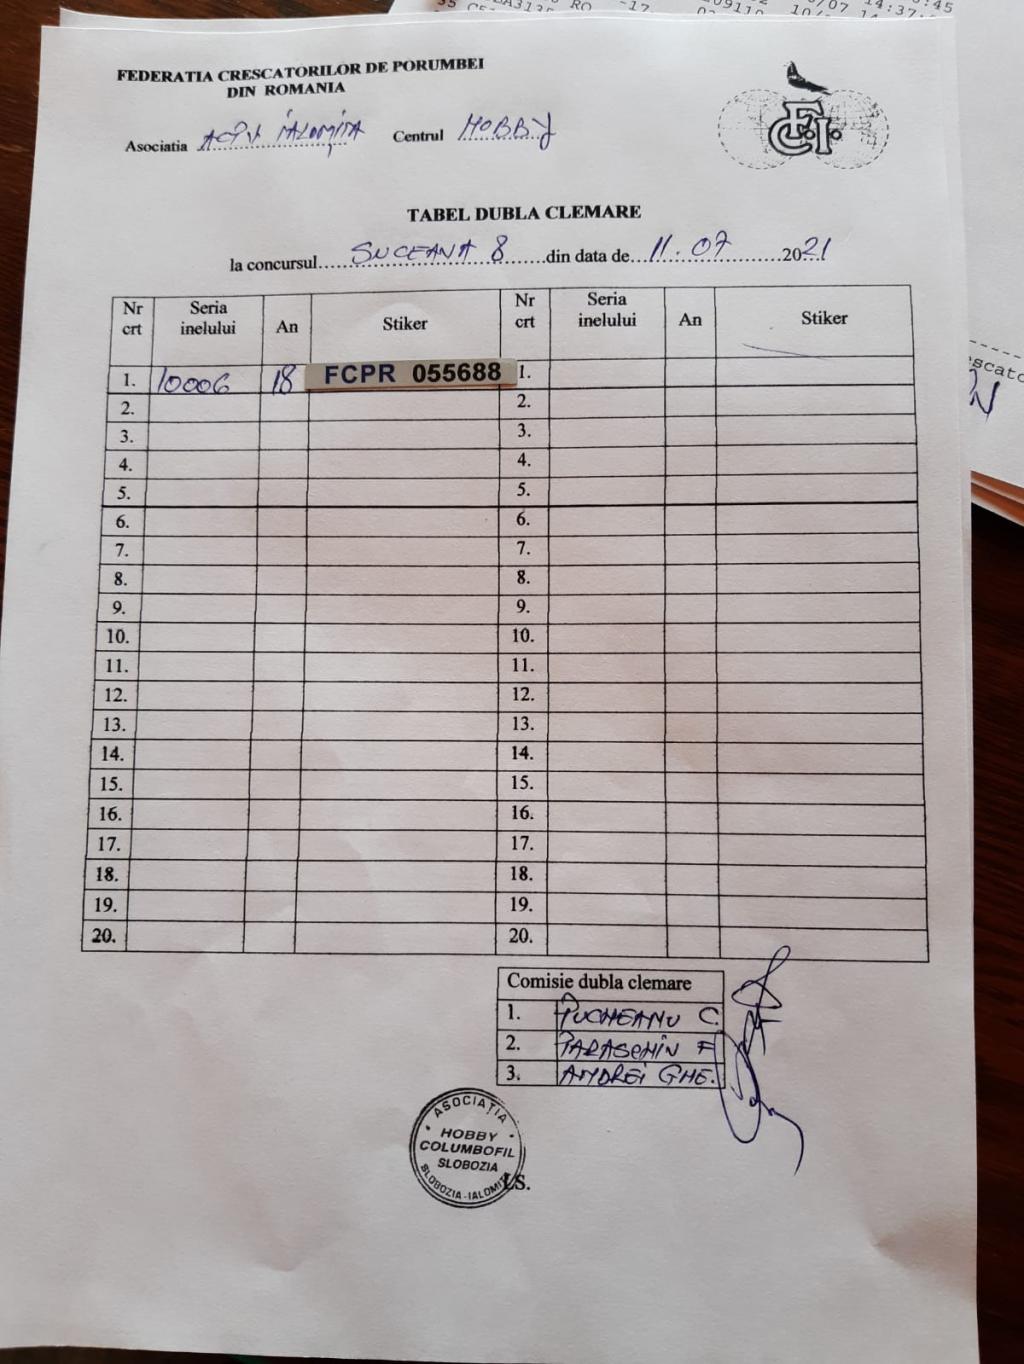 FEDERATIA CRESCATORILOR DE PORUMBEI
DIN ROMANIA
Asociatia ACPV IALOMIȚA Centrul HOBBY
TABEL DUBLA CLEMARE
la concursul SUCEAVA 8 din data de 11.07 2021
Nr crt Seria inelului An Stiker Nr crt Seria inelului An Stiker
1. 10006 18 FCPR 055688 1.
2. 2.
3. 3.
4. 4.
5. 5.
6. 6.
7. 7.
8. 8.
9. 9.
10. 10.
11. 11.
12. 12.
13. 13.
14. 14.
15. 15.
16. 16.
17. 17.
18. 18.
19. 19.
20. 20.
Comisie dubla clemare
1. PUCHEANU C.
2. PARASCHIV F
3. ANDREI GHE.
ASOCIAȚIA
HOBBY
COLUMBOFIL
SLOBOZIA
SLOBOZIA-IALOMIȚA
LS.